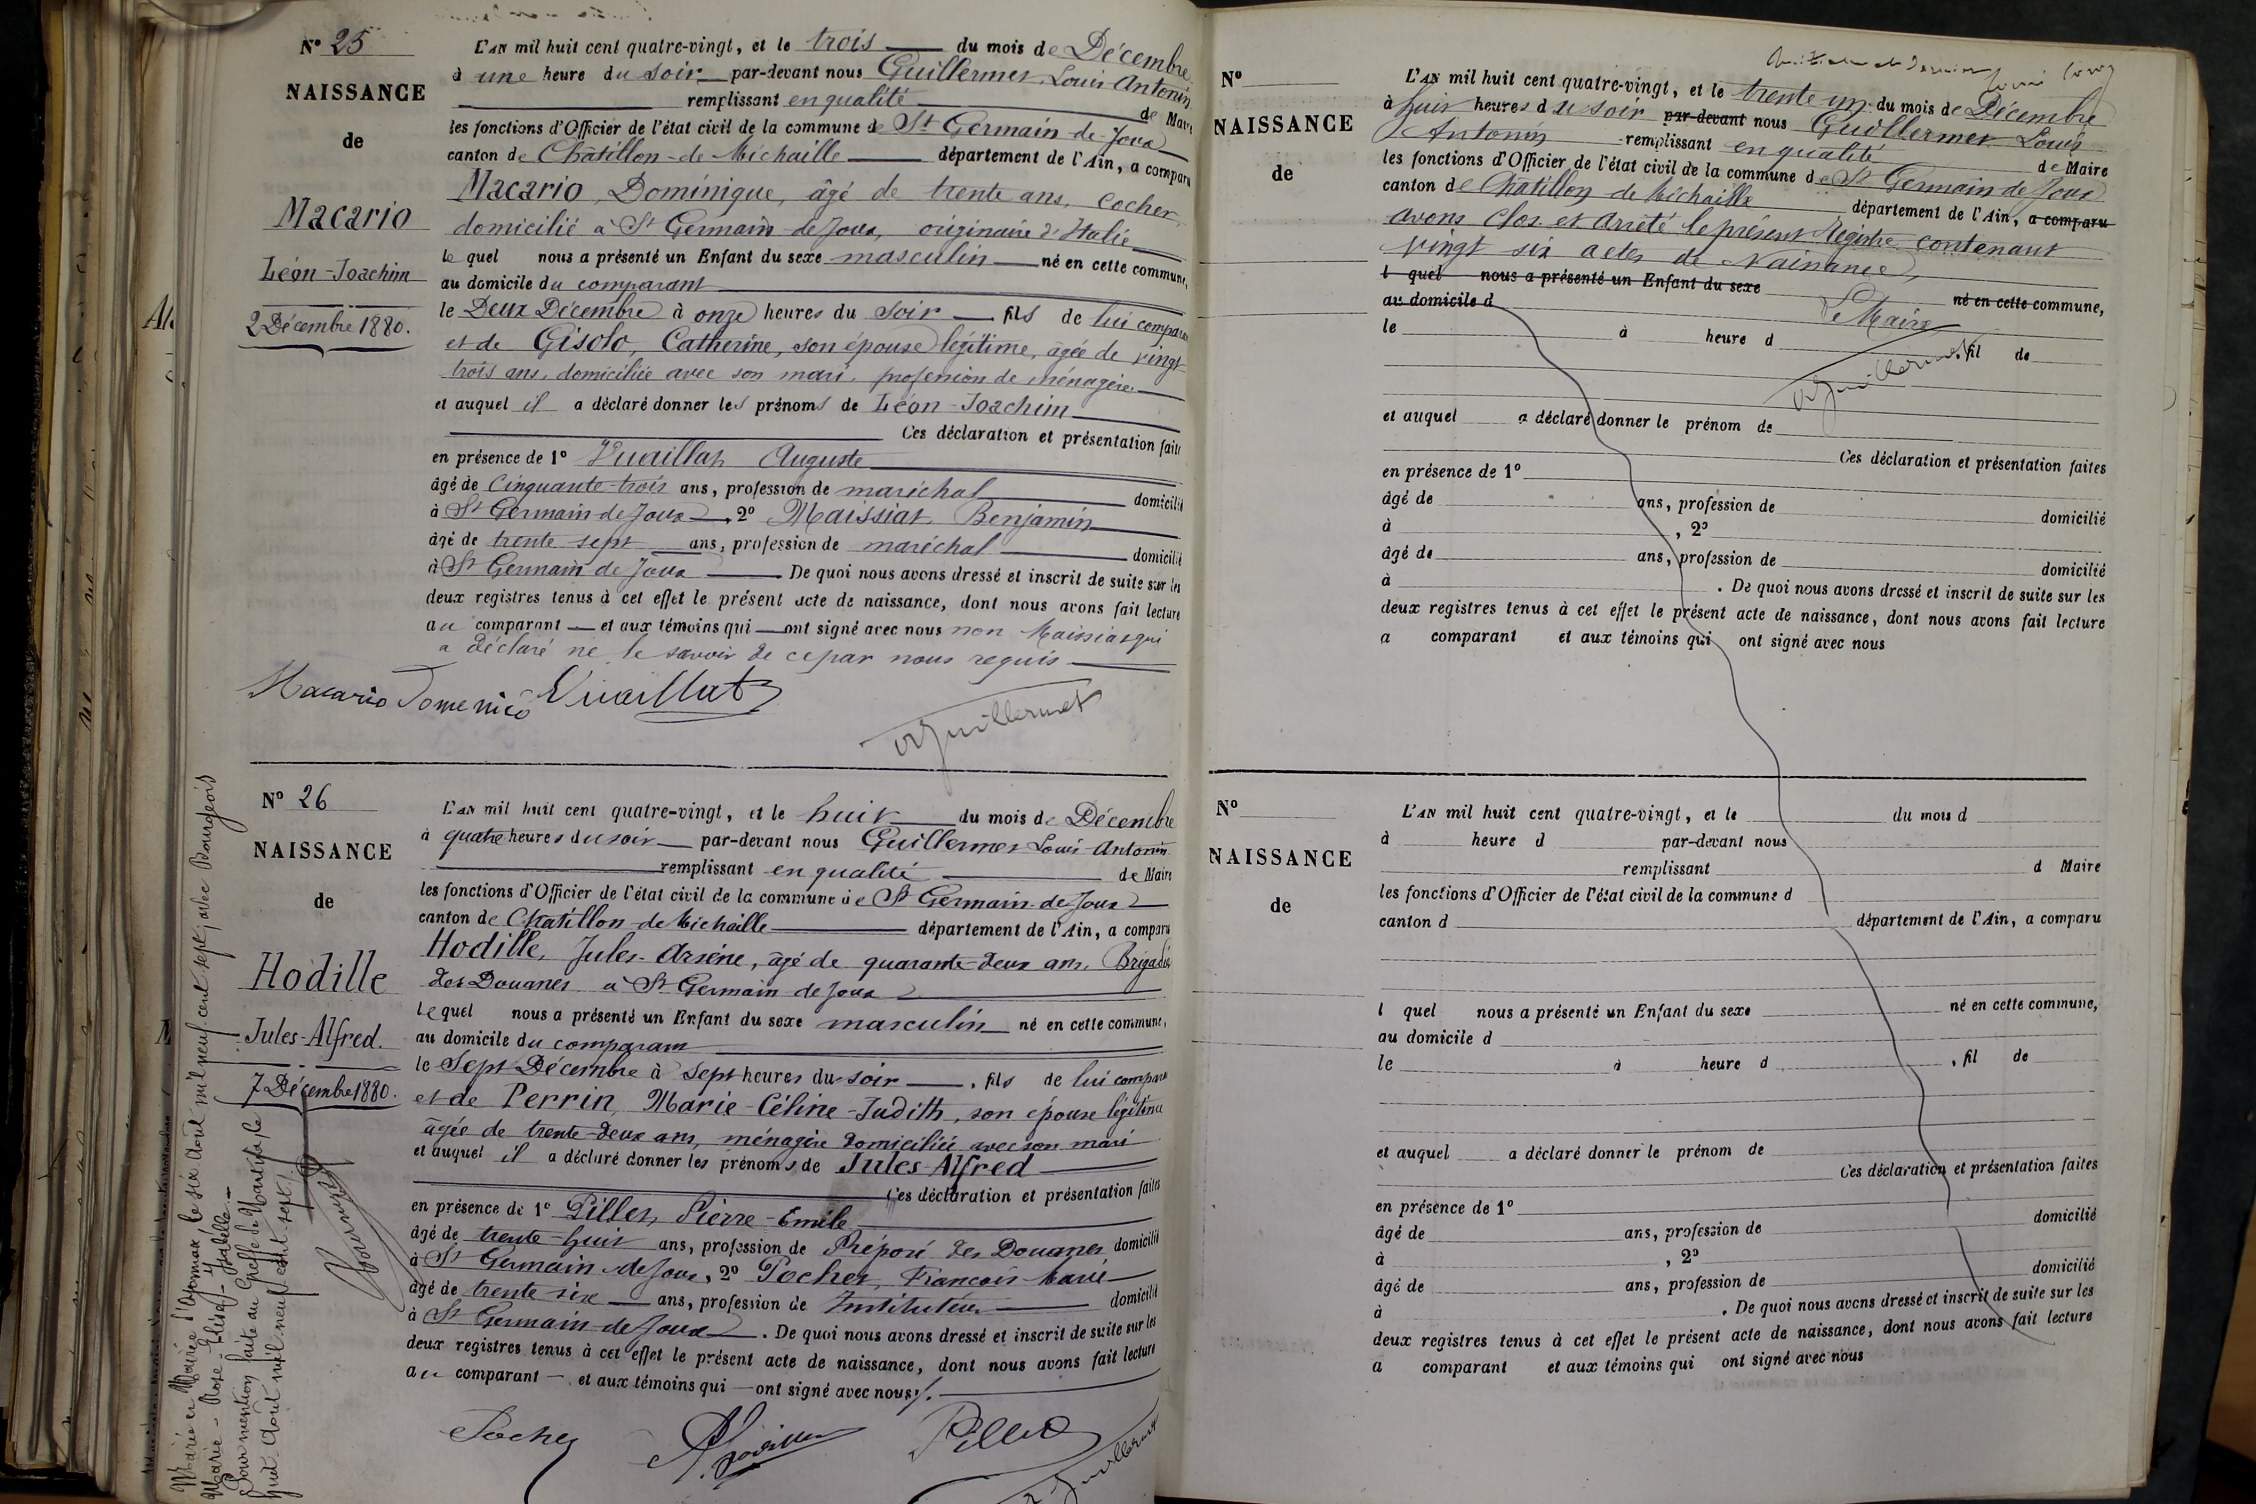 N° 25
NAISSANCE
de
Macario
Léon-Joachim
2 Décembre 1880.
L'AN mil huit cent quatre-vingt, et le trois du mois de Décembre
à une heure du soir par-devant nous Guillermet Louis Antonin
remplissant en qualité de Maire
les fonctions d'Officier de l'état civil de la commune de St Germain-de-Joux
canton de Châtillon-de-Michaille département de l'Ain, a comparu
Macario, Dominique, âgé de trente ans, Cocher,
domicilié à St Germain-de-Joux, originaire d'Italie
lequel nous a présenté un Enfant du sexe masculin né en cette commune,
au domicile du comparant
le Deux Décembre à onze heures du soir fils de lui comparant
et de Gisolo, Catherine, son épouse légitime, âgée de vingt
trois ans, domiciliée avec son mari, profession de ménagère
et auquel il a déclaré donner les prénoms de Léon-Joachim
Ces déclaration et présentation faites
en présence de 1° Vuaillat Auguste
âgé de Cinquante-trois ans, profession de maréchal domicilié
à St Germain-de-Joux, 2° Maissiat Benjamin
âgé de trente sept ans, profession de maréchal domicilié
à St Germain de Joux De quoi nous avons dressé et inscrit de suite sur les
deux registres tenus à cet effet le présent acte de naissance, dont nous avons fait lecture
au comparant et aux témoins qui ont signé avec nous non Maissiat qui
a déclaré ne le savoir de ce par nous requis
Macario Domenico Vuaillat
Guillermet
N° 26
NAISSANCE
de
Hodille
Jules-Alfred.
7 Décembre 1880.
Marié en Mairie d'Oyonnax, le six août mil neuf cent sept, avec Bourgeois
Marie-Rose-Elisa-Isabelle.
Pour mention faite au Greffe de Nantua le
huit Août mil neuf cent sept
L'AN mil huit cent quatre-vingt, et le huit du mois de Décembre
à quatre heures du soir par-devant nous Guillermet Louis Antonin
remplissant en qualité de Maire
les fonctions d'Officier de l'état civil de la commune de St Germain-de-Joux
canton de Chatillon-de-Michaille département de l'Ain, a comparu
Hodille, Jules-Arsène, âgé de quarante-deux ans, Brigadier
des Douanes à St Germain de Joux
lequel nous a présenté un Enfant du sexe masculin né en cette commune,
au domicile du comparant
le Sept Décembre à sept heures du soir, fils de lui comparant
et de Perrin, Marie-Céline-Judith, son épouse légitime
âgée de trente-deux ans, ménagère domiciliée avec son mari
et auquel il a déclaré donner les prénoms de Jules-Alfred
Ces déclaration et présentation faites
en présence de 1° Pillet, Pierre-Emile
âgé de trente-huit ans, profession de Préposé des Douanes domicilié
à St Germain-de-Joux, 2° Pochet, François-Marie
âgé de trente six ans, profession de Instituteur domicilié
à St Germain-de-Joux. De quoi nous avons dressé et inscrit de suite sur les
deux registres tenus à cet effet le présent acte de naissance, dont nous avons fait lecture
au comparant et aux témoins qui ont signé avec nous.
Pochet Hodille Pillet
Guillermet
N°
NAISSANCE
de
L'AN mil huit cent quatre-vingt, et le trente un du mois de Décembre
à huit heures du soir par-devant nous Guillermet Louis
Antonin remplissant en qualité de Maire
les fonctions d'Officier de l'état civil de la commune de St Germain de Joux
canton de Châtillon de Michaille département de l'Ain, a comparu
avons clos et arrêté le présent Registre contenant
vingt six actes de Naissance,
l quel nous a présenté un Enfant du sexe né en cette commune,
au domicile d
Le Maire
le à heure d , fil de
Guillermet
et auquel a déclaré donner le prénom de
Ces déclaration et présentation faites
en présence de 1°
âgé de ans, profession de domicilié
à , 2°
âgé de ans, profession de domicilié
à . De quoi nous avons dressé et inscrit de suite sur les
deux registres tenus à cet effet le présent acte de naissance, dont nous avons fait lecture
a comparant et aux témoins qui ont signé avec nous
N°
NAISSANCE
de
L'AN mil huit cent quatre-vingt, et le du mois d
à heure d par-devant nous
remplissant d Maire
les fonctions d'Officier de l'état civil de la commune d
canton d département de l'Ain, a comparu
l quel nous a présenté un Enfant du sexe né en cette commune,
au domicile d
le à heure d , fil de
et auquel a déclaré donner le prénom de
Ces déclaration et présentation faites
en présence de 1°
âgé de ans, profession de domicilié
à , 2°
âgé de ans, profession de domicilié
à . De quoi nous avons dressé et inscrit de suite sur les
deux registres tenus à cet effet le présent acte de naissance, dont nous avons fait lecture
a comparant et aux témoins qui ont signé avec nous